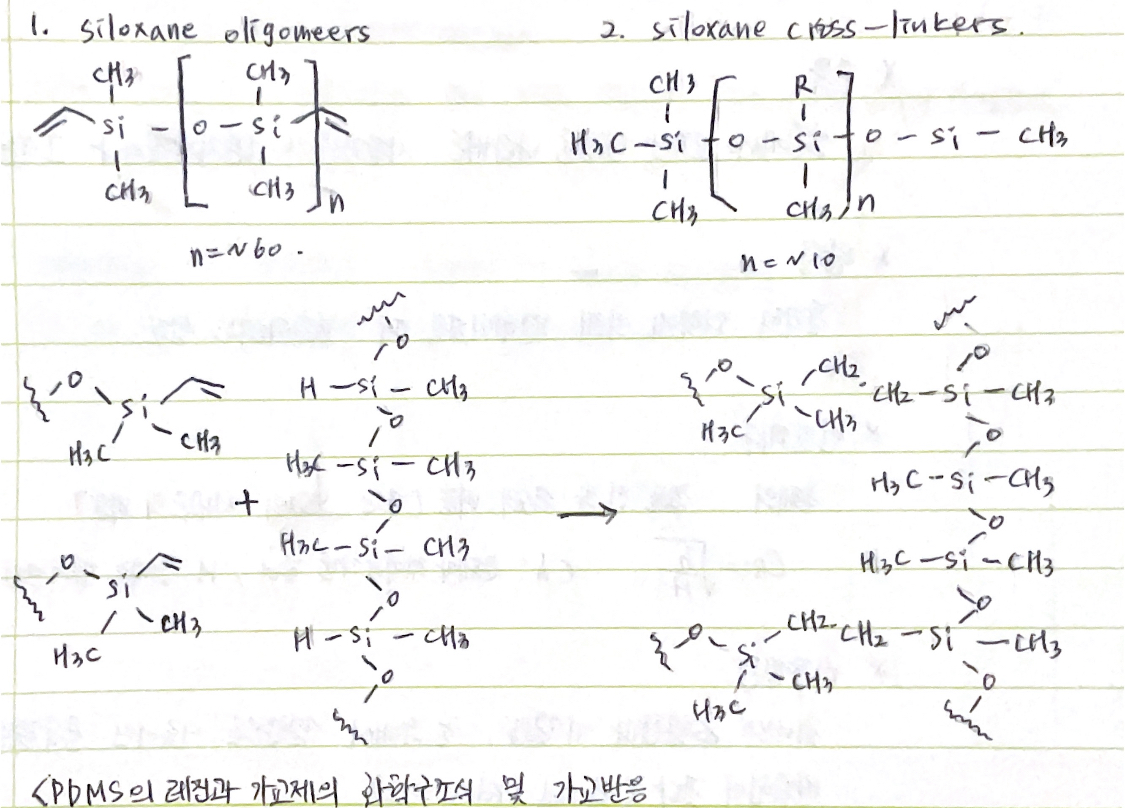 1. siloxane oligomeers
2. siloxane cross-linkers.
CH3 CH3
Si - [ O - Si ] n
CH3 CH3
n=~60.
CH3 R
H3C - Si [ O - Si ] n O - Si - CH3
CH3 CH3
n=~10
O Si
H3C CH3
+
O Si
H3C CH3
O
H - Si - CH3
O
H3C - Si - CH3
O
H3C - Si - CH3
O
H - Si - CH3
O
→
O Si CH2 CH2 - Si - CH3
H3C CH3
O
O
H3C - Si - CH3
O
H3C - Si - CH3
O
O Si CH2 CH2 - Si - CH3
H3C CH3
O
<PDMS의 레진과 가교제의 화학구조식 및 가교반응